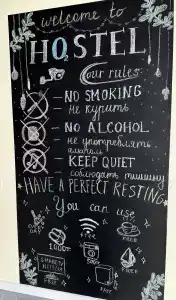 welcome to
HO2STEL
our rules
-NO SMOKING
не курить
-NO ALCOHOL
-не употреблять
алкоголь
-KEEP QUIET
соблюдать тишину
HAVE A PERFECT RESTING
You can use
FREE
FREE